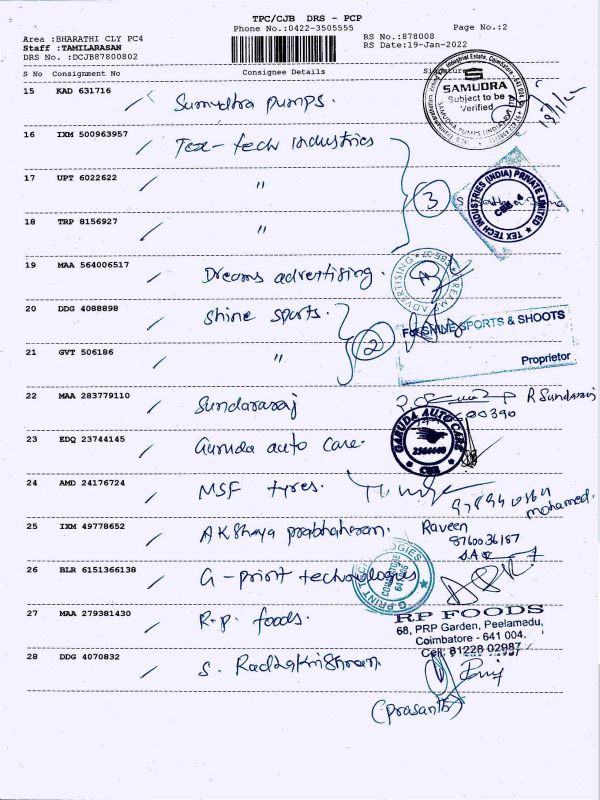 TPC/CJB DRS - PCP
Phone No.:0422-3505555
Page No.:2
Area :BHARATHI CLY PC4
Staff :TAMILARASAN
DRS No. :DCJB87800802
RS No.:878008
RS Date:19-Jan-2022
S No Consignment No Consignee Details Signature
15 KAD 631716 Sumuthra pumps.
SAMUDRA
Subject to be
Verified
16 IXM 500963957 Tex-tech industries
17 UPT 6022622 "
3
TEX TECH INDUSTRIES (INDIA) PRIVATE LIMITED
CBE
18 TRP 8156927 "
19 MAA 564006517 Dreams advertising.
20 DDG 4088898 Shine sports.
2
For SHINE SPORTS & SHOOTS
Proprietor
21 GVT 506186 "
22 MAA 283779110 Sundararaj
R Sundararaj
23 EDQ 23744145 Garuda auto care.
GARUDA AUTO CARE
2364440
CBE
24 AMD 24176724 MSF tyres.
mohamed.
25 IXM 49778652 AKShaya prabhaharan.
Raveen
8760036187
26 BLR 6151366138 G-print technologies
27 MAA 279381430 R.p. foods.
RP FOODS
68, PRP Garden, Peelamedu,
Coimbatore - 641 004.
Cell: 81228 02987
28 DDG 4070832 S. Radhakrishnan.
(prasanth)